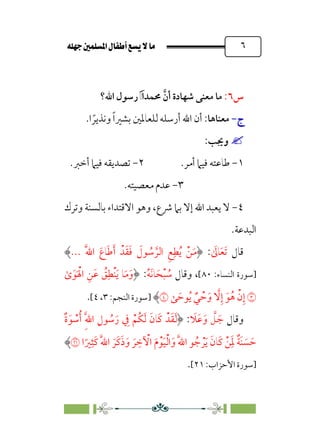 ٦ ما لا يسع أطفال المسلمين جهله
س٦: ما معنى شهادة أنَّ محمداً رسول الله؟
ج- معناها: أن الله أرسله للعالمين بشيراً ونذيرًا.
ويجب:
١- طاعته فيما أمر. ٢- تصديقه فيما أخبر.
٣- عدم معصيته.
٤- لا يعبد الله إلا بما شرع، وهو الاقتداء بالسنة وترك
البدعة.
قال تَعَالَىٰ: ﴿مَّن يُطِعِ ٱلرَّسُولَ فَقَدْ أَطَاعَ ٱللَّهَ ...﴾
[سورة النساء: ٨٠]، وقال سُبْحَانَهُ: ﴿وَمَا يَنطِقُ عَنِ ٱلْهَوَىٰٓ
٣ إِنْ هُوَ إِلَّا وَحْىٌ يُوحَىٰ ٤﴾ [سورة النجم: ٣، ٤].
وقال جَلَّ وَعَلَا: ﴿لَّقَدْ كَانَ لَكُمْ فِى رَسُولِ ٱللَّهِ أُسْوَةٌ
حَسَنَةٌ لِّمَن كَانَ يَرْجُوا۟ ٱللَّهَ وَٱلْيَوْمَ ٱلْـَٔاخِرَ وَذَكَرَ ٱللَّهَ كَثِيرًا ٢١﴾
[سورة الأحزاب: ٢١].